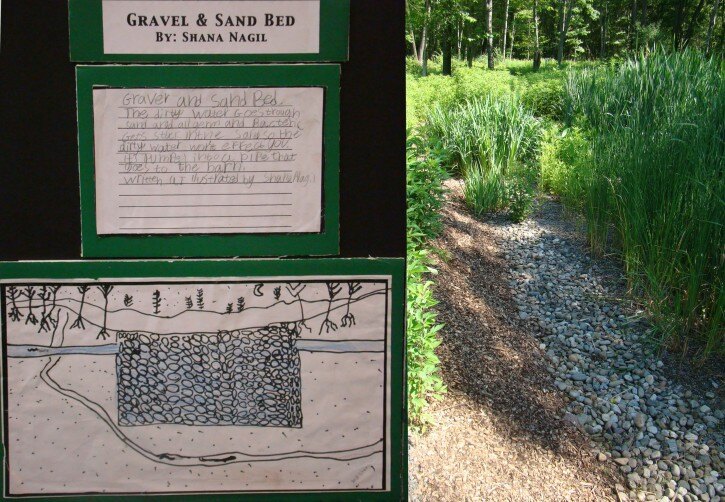 GRAVEL & SAND BED
BY: SHANA NAGIL
Gravel and Sand Bed.
The dirty water Goes trough
sand and all germ and Bacteric
Gets stuck in the sand so the
dirty water wont effect you
it's Pumped into a pipe that
Goes to the barn.
written Illustrated by Shana Nagil